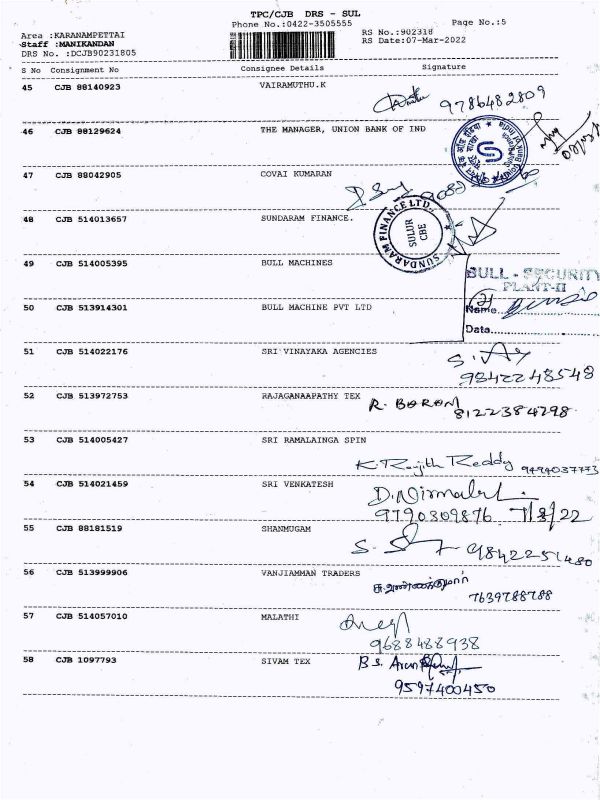 TPC/CJB DRS - SUL
Phone No.:0422-3505555
Page No.:5
Area :KARANAMPETTAI
RS No.:902318
Staff :MANIKANDAN
RS Date:07-Mar-2022
DRS No. :DCJB90231805
S No Consignment No Consignee Details Signature
45 CJB 88140923 VAIRAMUTHU.K
9786482809
46 CJB 88129624 THE MANAGER, UNION BANK OF IND
47 CJB 88042905 COVAI KUMARAN
48 CJB 514013657 SUNDARAM FINANCE.
SUNDARAM FINANCE LTD.
SULUR
CBE
49 CJB 514005395 BULL MACHINES
BULL - SECURITY
PLANT-II
50 CJB 513914301 BULL MACHINE PVT LTD
Name
Data
51 CJB 514022176 SRI VINAYAKA AGENCIES
9842248548
52 CJB 513972753 RAJAGANAAPATHY TEX
R. BARANI
8122384298
53 CJB 514005427 SRI RAMALAINGA SPIN
K. Ranjith Reddy 9494037773
54 CJB 514021459 SRI VENKATESH
D. Nirmal
9790309876 7/3/22
55 CJB 88181519 SHANMUGAM
9842251480
56 CJB 513999906 VANJIAMMAN TRADERS
7639788788
57 CJB 514057010 MALATHI
9688488938
58 CJB 1097793 SIVAM TEX
B.S. Arun
9597400450